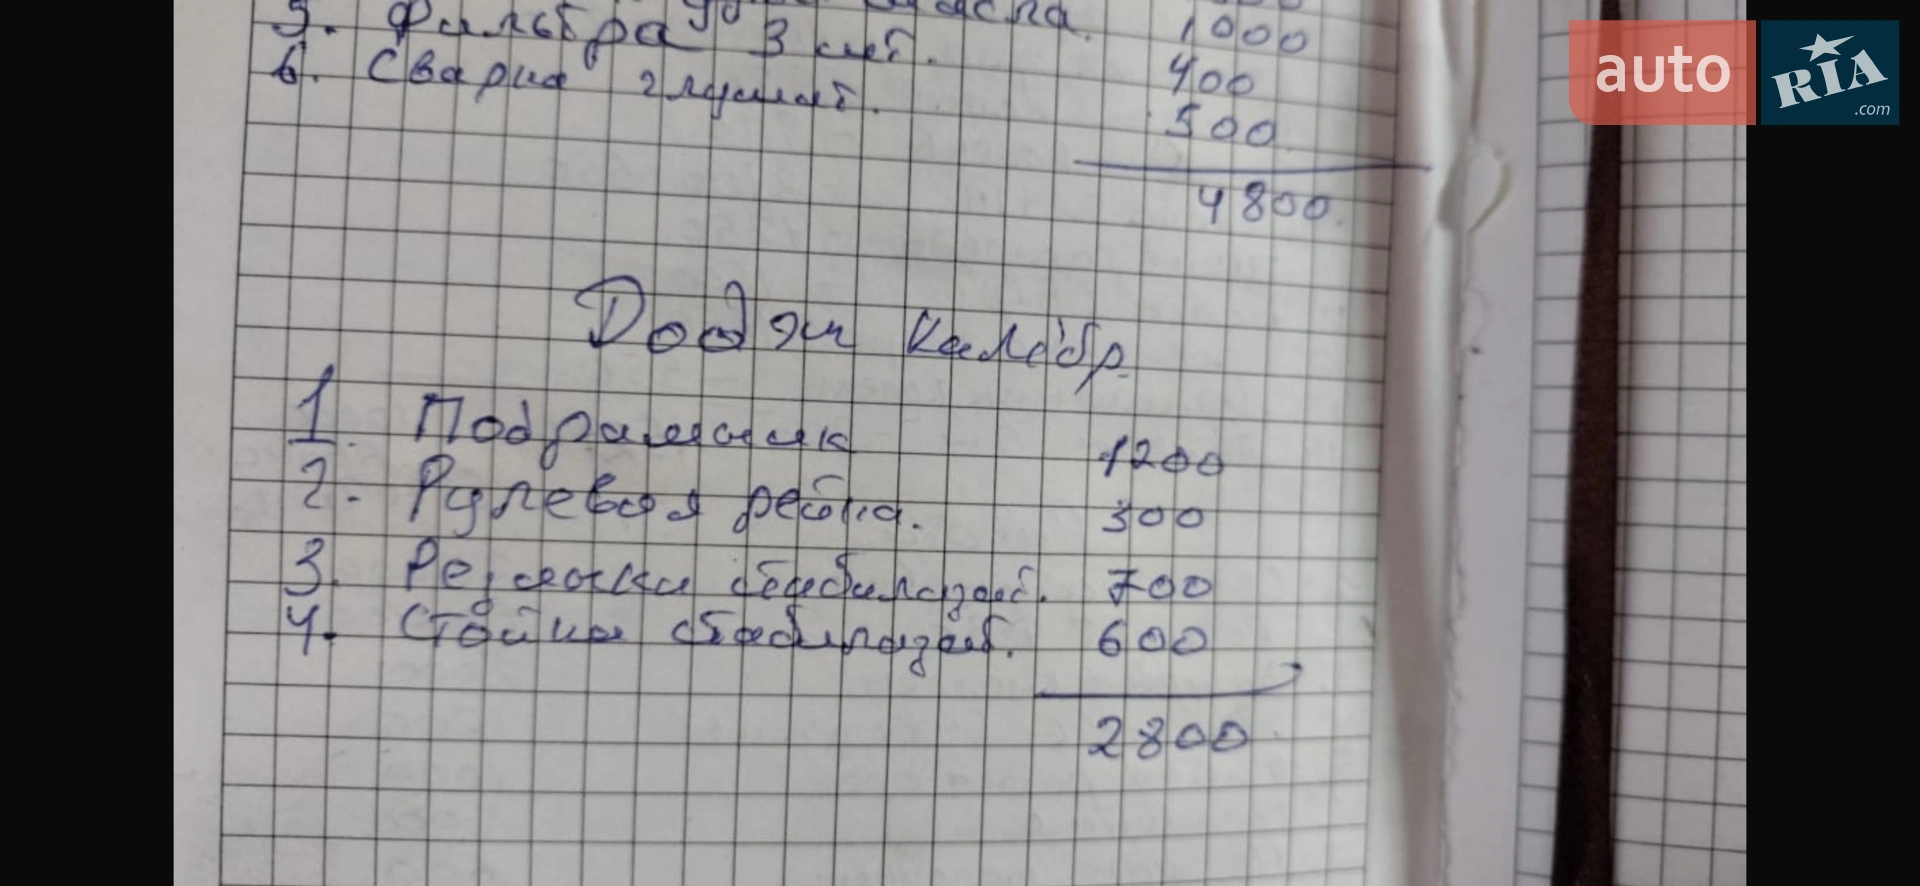 масла. 1000
5. Фильтра 3 шт. 400
6. Сварка глушит. 500
4800.
Додж калибр.
1. Подрамник 1200
2. Рулевая рейка. 300
3. Резинки стабилизат. 700
4. Стойки стабилизат. 600
2800
auto RIA .com